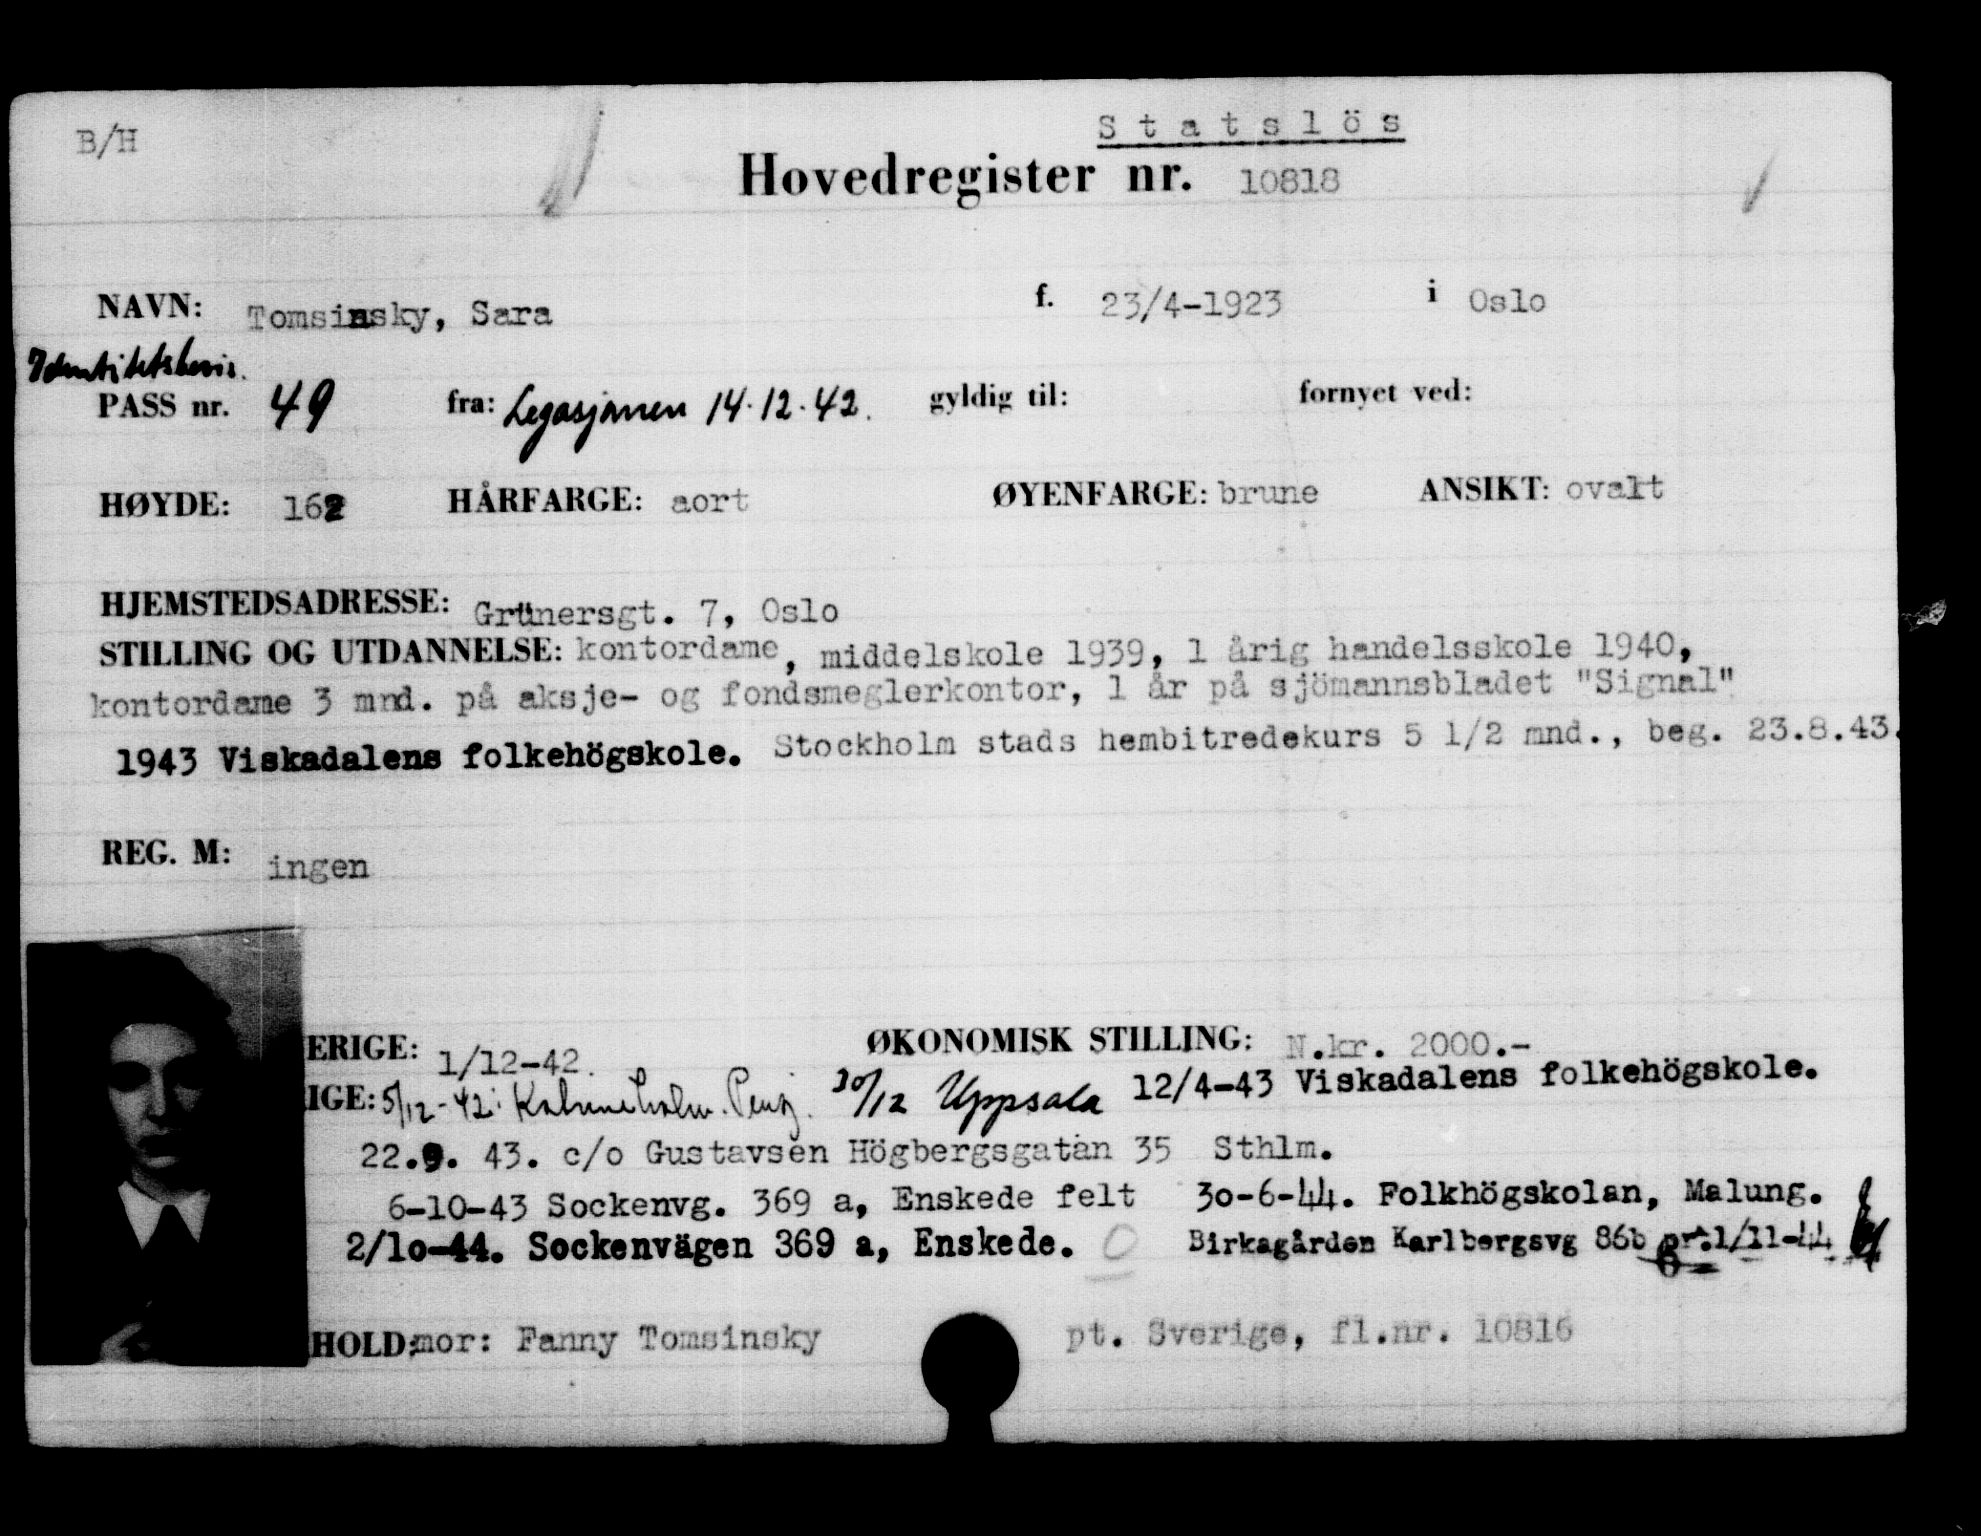 B/H
Statslös
Hovedregister nr. 10818
NAVN: Tomsinsky, Sara f. 23/4-1923 i Oslo
Identitetsbevis.
PASS nr. 49 fra: Legasjonen 14.12.42. gyldig til: fornyet ved:
HØYDE: 162 HÅRFARGE: aort ØYENFARGE: brune ANSIKT: ovalt
HJEMSTEDSADRESSE: Grünersgt. 7, Oslo
STILLING OG UTDANNELSE: kontordame, middelskole 1939, 1 årig handelsskole 1940,
kontordame 3 mnd. på aksje- og fondsmeglerkontor, 1 år på sjömannsbladet "Signal"
1943 Viskadalens folkehögskole. Stockholm stads hembitredekurs 5 1/2 mnd., beg. 23.8.43.
REG. M: ingen
ERIGE: 1/12-42. ØKONOMISK STILLING: N.kr. 2000.-
IGE: 5/12-42: 30/12 Uppsala 12/4-43 Viskadalens folkehögskole.
22.9. 43. c/o Gustavsen Högbergsgatan 35 Sthlm.
6-10-43 Sockenvg. 369 a, Enskede felt 30-6-44. Folkhögskolan, Malung.
2/10-44. Sockenvägen 369 a, Enskede. O Birkagården Karlbergsvg 86b pr.1/11-44
HOLD: mor: Fanny Tomsinsky pt. Sverige, fl.nr. 10816